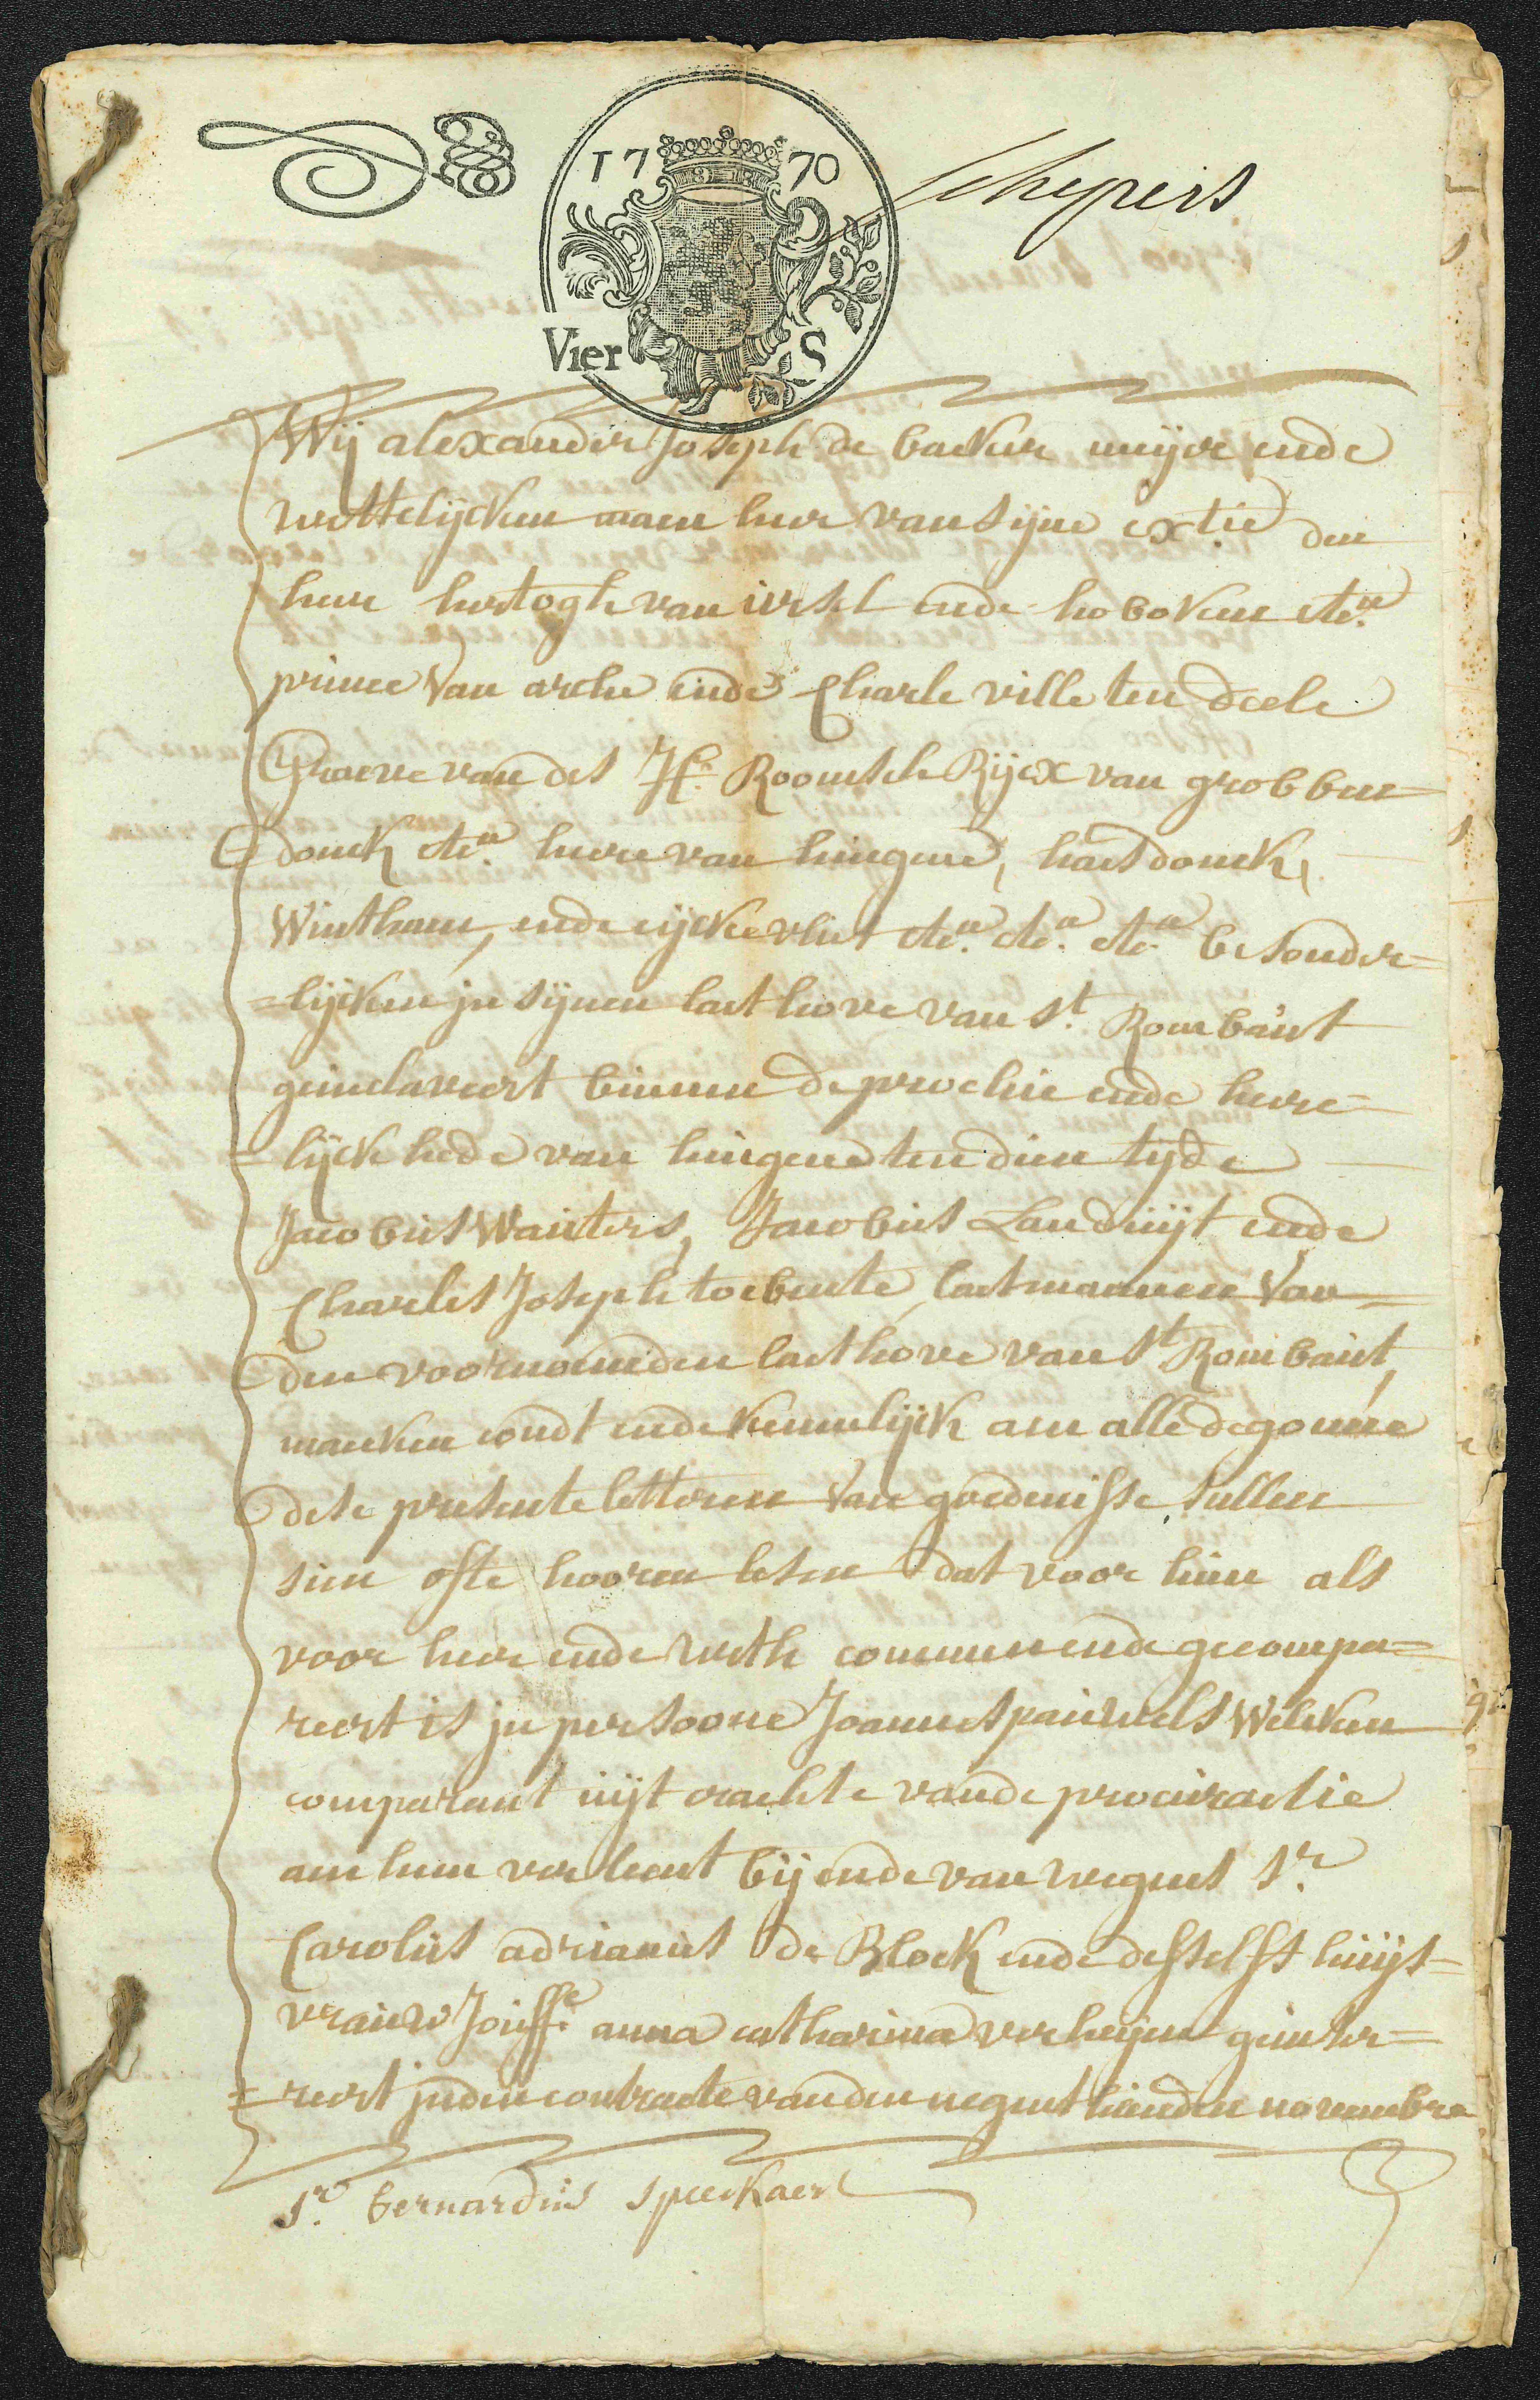 1770
Schepers
Vier S
Wij alexander Joseph de backer meijer ende
wettelijcken maen heer van sijne ex:tie den
heere hertogh van ursel ende hoboken etc:a
prince van arche ende Charleville ten deele
Graeve van des H: Roomsch Rijcx van grobben=
donck etc:a heere van hingene, haesdonck,
Wintham, ende eijckevliet etc:a etc:a etc:a besonder=
=lijcken in sijnen laethove van St Rombaut
geinclaveert binnen de prochie ende heere=
=lijckhede van hingene ten dien tyde
Jacobus Wauters, Jacobus Landuijt ende
Charles Joseph toebente, laetmannen van
den voornoemden laethove van St Rombaut,
maecken condt ende kennelijck aen alle de gonne
dese presente letteren van goedenisse sullen
sien ofte hooren lesen dat voor hun als
voor heer ende weth commen ende gecompa=
reert is in persoone Joannes pauwels Welcken
comparant uijt crachte vande procuratie
aen hem verleent bij ende van weghens Sr
Carolus adrianus de Block ende desselfs huijs=
vrauw Jouffe anna catharina verheijen geinse=
=reert in den contracte vanden negenthienden november
Sr bernardus speeckaert